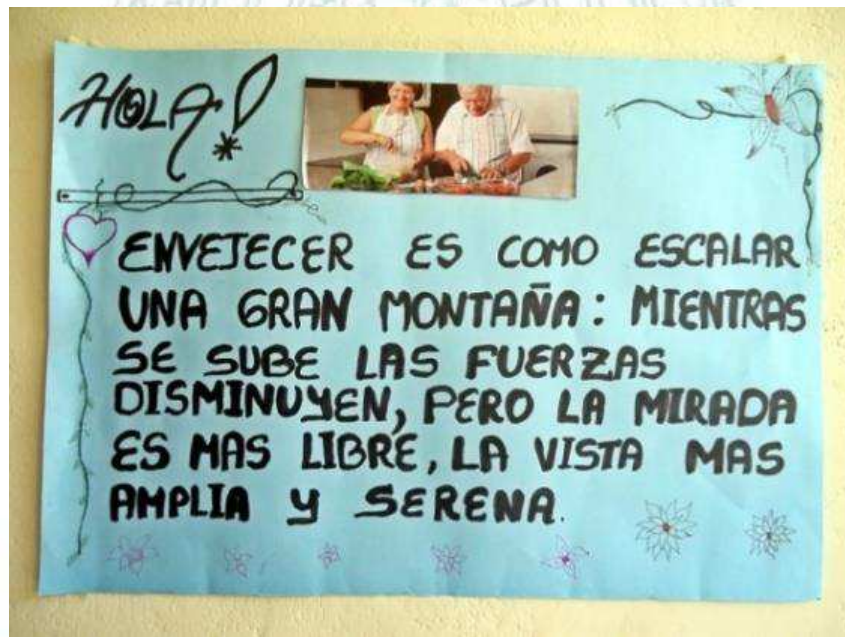 HOLA!
ENVEJECER ES COMO ESCALAR
UNA GRAN MONTAÑA: MIENTRAS
SE SUBE LAS FUERZAS
DISMINUYEN, PERO LA MIRADA
ES MAS LIBRE, LA VISTA MAS
AMPLIA Y SERENA.